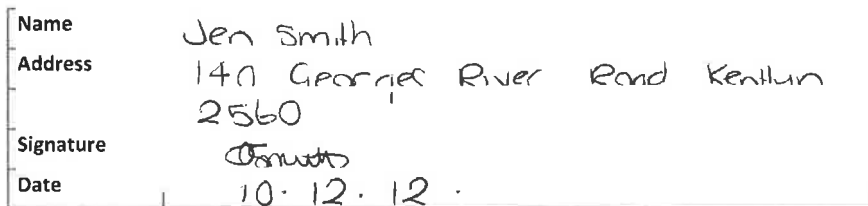 Name Jen Smith
Address 140 Georges River Road Kentlyn
2560
Signature
Date 10.12.12.